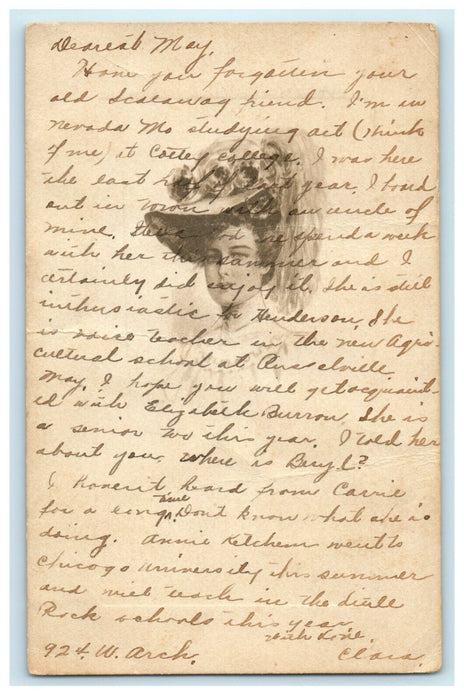 Dearest May,
Have you forgotten your
old Scalawag friend. I'm in
Nevada Mo studying art (think
of me) at Cottey College. I was here
the last half of last year. I board
out in town with an uncle of
mine. had me spend a week
with her this summer and I
certainly did enjoy it. She is still
inthusiastic for Henderson. She
is voice teacher in the new Agri-
cultural school at Russelville
May, I hope you will get acquaint-
ed with Elizabeth Burrow. She is
a senior too this year. I told her
about you. Where is Beryl?
I haven't heard from Carrie
for a long time. Don't know what she is
doing. Annie Ketchem went to
Chicago University this summer
and will teach in the Little
Rock schools this year.
With love,
924. W. Arch. Clara.